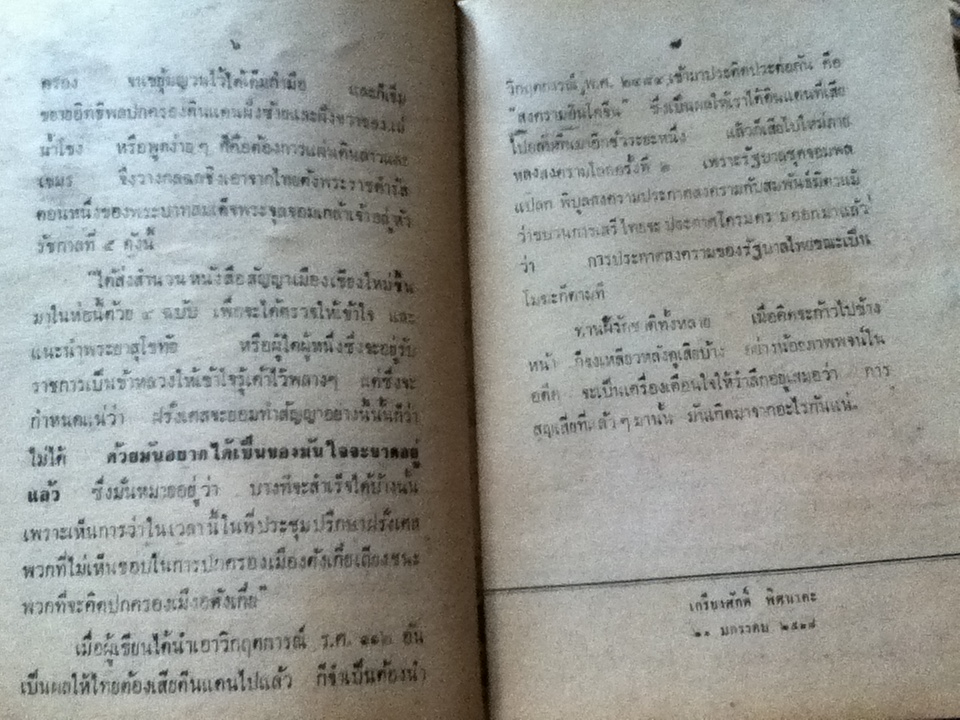 ๖
ครอง จนเขยุ้มญวนไว้ได้เต็มกำมือ และก็เริ่ม
ขยายอิทธิพลปกครองดินแดนฝั่งซ้ายและฝั่งขวาของแม่
น้ำโขง หรือพูดง่าย ๆ ก็คือต้องการแผ่นดินลาวและ
เขมร จึงวางกลฉกชิงเอาจากไทยดังพระราชดำรัส
ตอนหนึ่งของพระบาทสมเด็จพระจุลจอมเกล้าเจ้าอยู่หัว
รัชกาลที่ ๕ ดังนี้
"ได้ส่งสำนวนหนังสือสัญญาเมืองเชียงใหม่ขึ้น
มาในห่อนี้ด้วย ๔ ฉบับ เพื่อจะได้ตรวจให้เข้าใจ และ
แนะนำพระยาสุโขทัย หรือผู้ใดผู้หนึ่งซึ่งจะอยู่รับ
ราชการเป็นข้าหลวงให้เข้าใจรู้เค้าไว้พลางๆ แต่ซึ่งจะ
กำหนดแน่ว่า ฝรั่งเศสจะยอมทำสัญญาอย่างนี้นั้นก็ว่า
ไม่ได้ ด้วยมันอยากได้เป็นของมันใจจะขาดอยู่
แล้ว ซึ่งมันหมายอยู่ว่า บางทีจะสำเร็จได้บ้างนั้น
เพราะเห็นการว่าในเวลานี้ในที่ประชุมปรึกษาฝรั่งเศส
พวกที่ไม่เห็นชอบในการปกครองเมืองตังเกี๋ยเถียงชนะ
พวกที่จะคิดปกครองเมืองตังเกี๋ย"
เมื่อผู้เขียนได้นำเอาวิกฤตการณ์ ร.ศ. ๑๑๒ อัน
เป็นผลให้ไทยต้องเสียดินแดนไปแล้ว ก็จำเป็นต้องนำ
๗
วิกฤตการณ์ พ.ศ. ๒๔๘๔ เข้ามาประติดประต่อกัน คือ
"สงครามอินโดจีน" ซึ่งเป็นผลให้เราได้ดินแดนที่เสีย
ไปกลับคืนมาอีกชั่วระยะหนึ่ง แล้วก็เสียไปใหม่ภาย
หลังสงครามโลกครั้งที่ ๒ เพราะรัฐบาลชุดจอมพล
แปลก พิบูลสงครามประกาศสงครามกับสัมพันธมิตรแม้
ว่าขบวนการเสรีไทยจะประกาศโครมครามออกมาแล้ว
ว่า การประกาศสงครามของรัฐบาลไทยขณะเป็น
โมฆะก็ตามที
ท่านผู้รักชาติทั้งหลาย เมื่อคิดจะก้าวไปข้าง
หน้า ก็จงเหลียวหลังดูเสียบ้าง อย่างน้อยภาพพจน์ใน
อดีต จะเป็นเครื่องเตือนใจให้รำลึกอยู่เสมอว่า การ
สูญเสียที่แล้ว ๆ มานั้น มันเกิดมาจากอะไรกันแน่.
เกรียงศักดิ์ พิศนาคะ
๑๑ มกราคม ๒๕๑๘